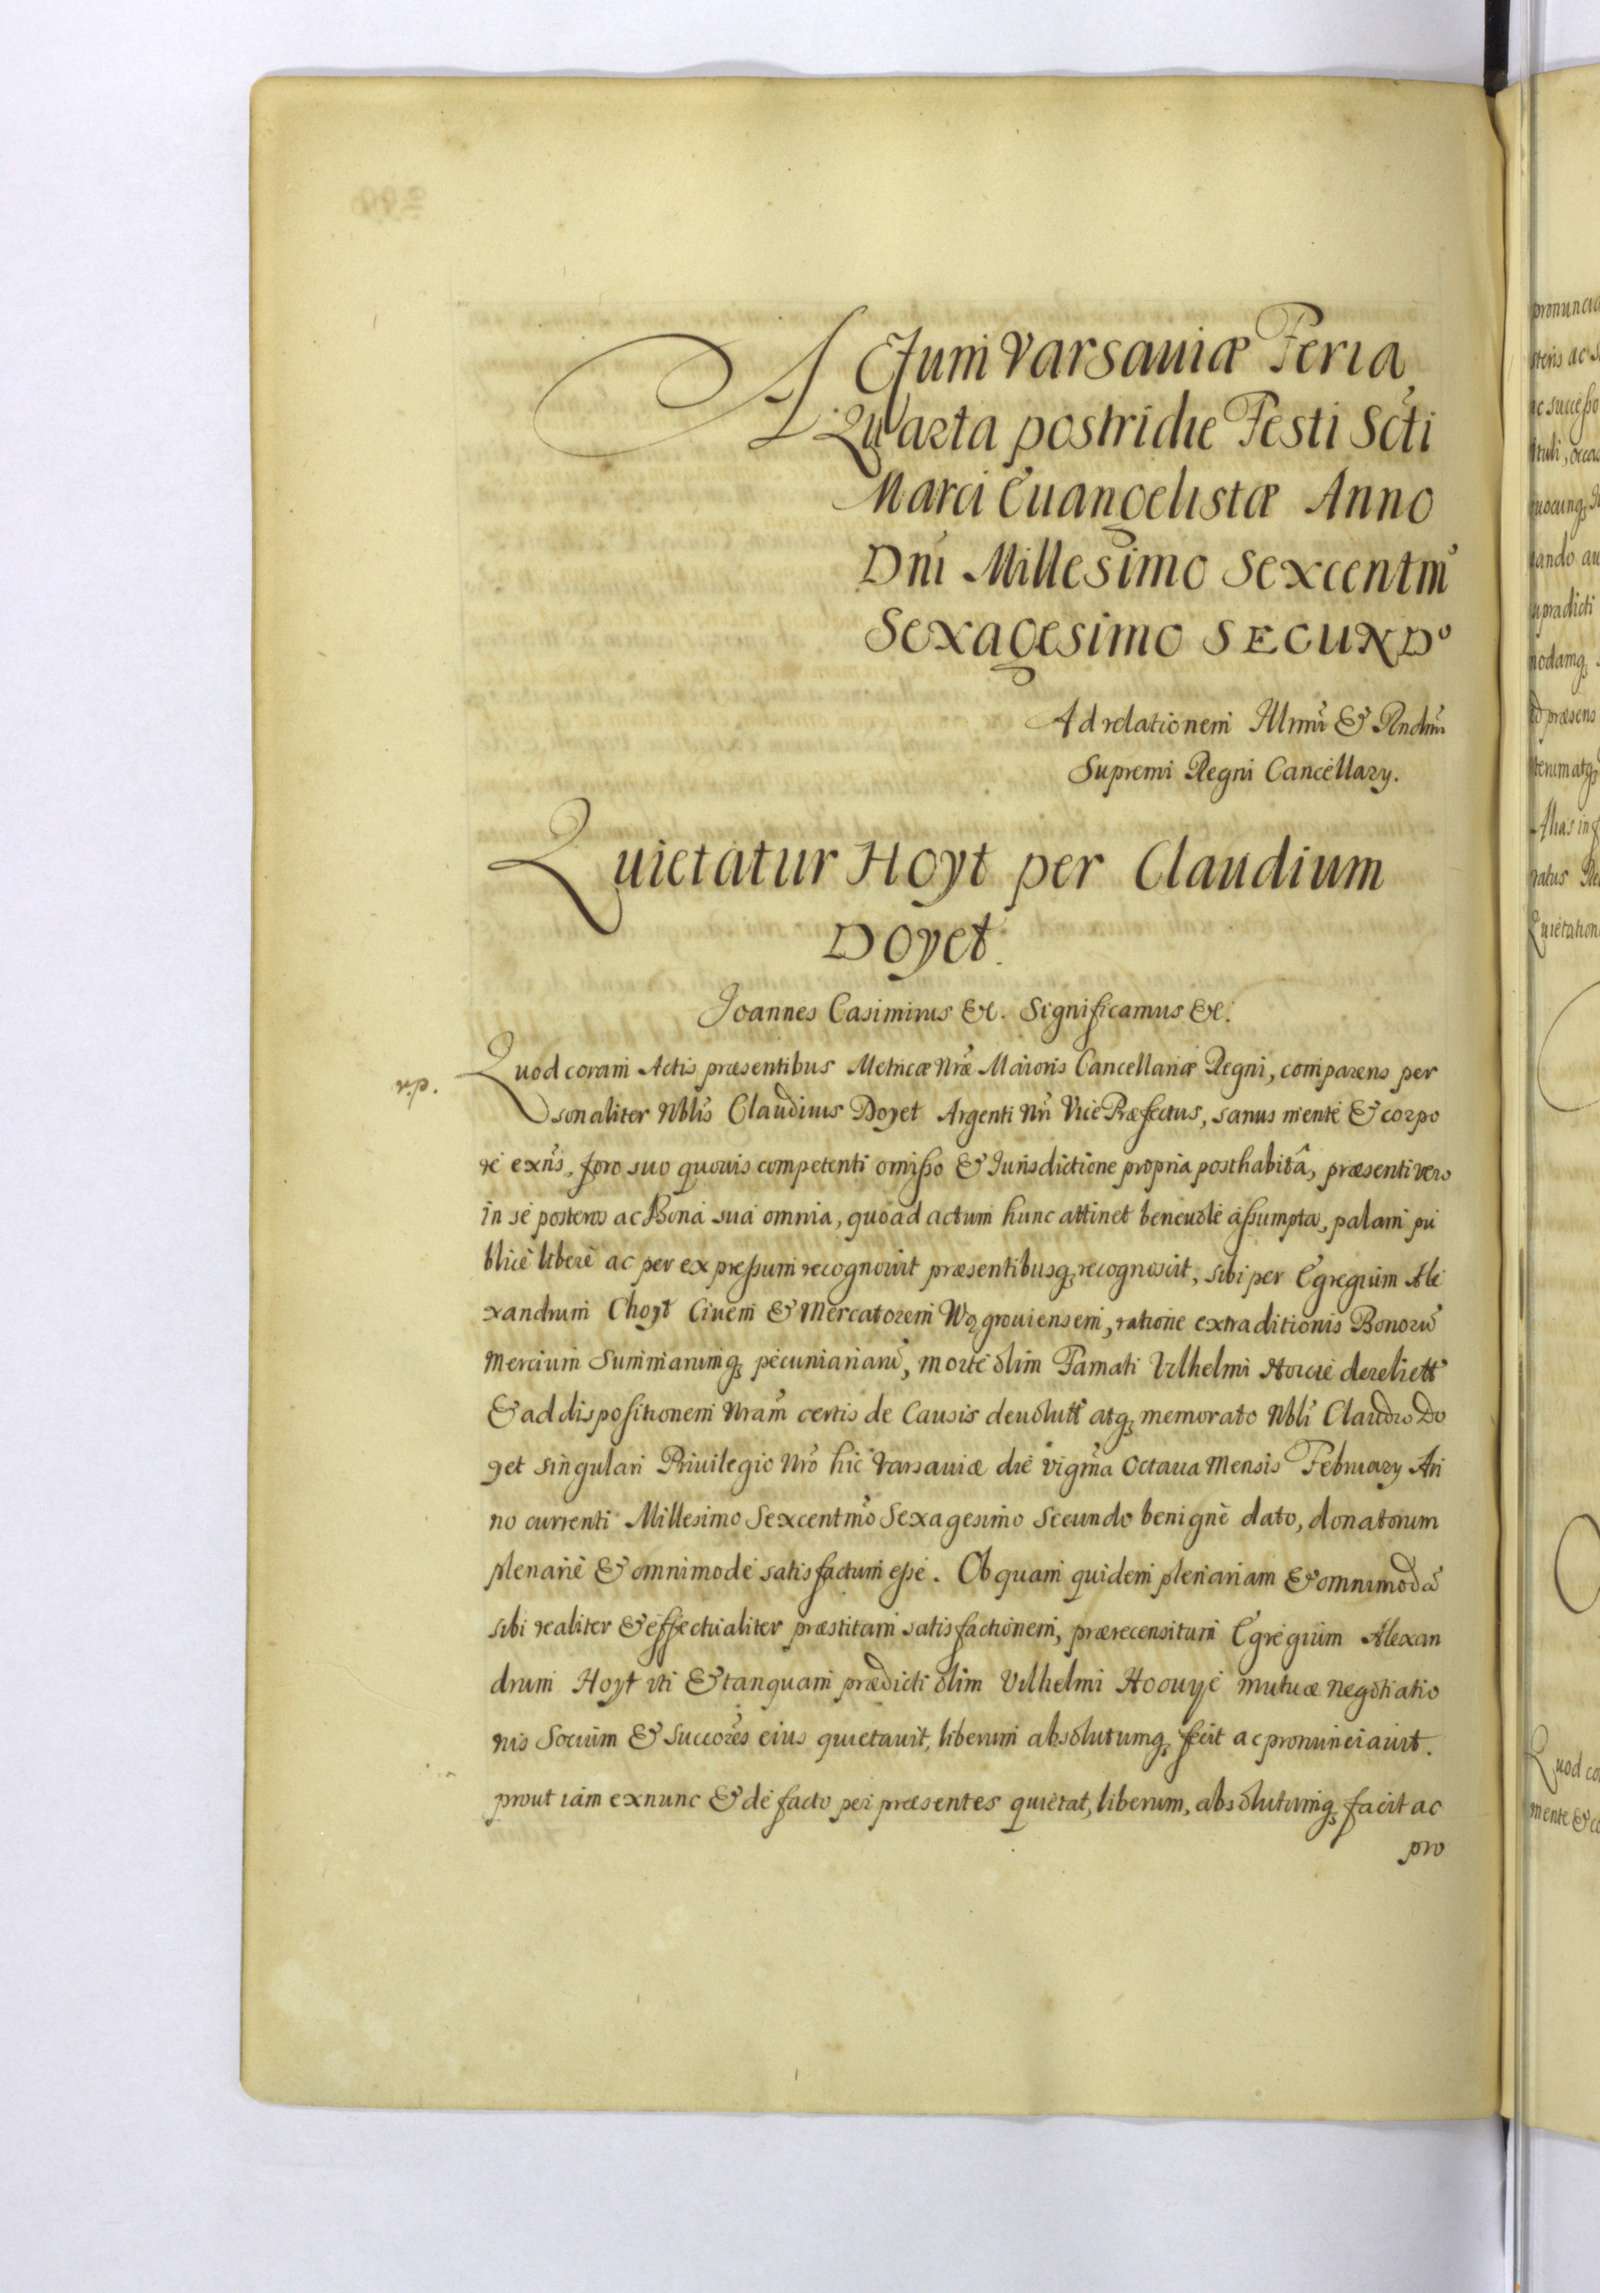 Actum Varsaviæ Feria
Quarta postridie Festi Scti
Marci Euangelistæ Anno
Dni Millesimo Sexcentmo
Sexagesimo SECUNDo
Ad relationem Illmi & Rndmi
Supremi Regni Cancellary.
Quietatur Hoyt per Claudium
Doyet.
Joannes Casimirus &c. Significamus &c.
v.p.
Quod coram Actis præsentibus Metricæ Nræ Maioris Cancellariæ Regni, comparens per
sonaliter Nblis Claudius Doyet Argenti Nri Vice Præfectus, sanus mente & corpo
re exns, foro suo quouis competenti omisso & Jurisdictione propria posthabitâ, præsenti vero
in se posteros ac Bona sua omnia, quoad actum hunc attinet beneuole assumpta, palam pu
blicè liberè ac per expressum recognouit præsentibusq recognoscit, sibi per Egregium Ale
xandrum Choyt Ciuem & Mercatorem Wegrouiensem, ratione extraditionis Bonoru
Mercium Summarumq pecuniariaru, morte olim Famati Vilhelmi Howie derelictt
& ad dispositionem Nram certis de Causis deuolutt atq memorato Nbli Claudio Do
yet singulari Priuilegio Nro hic Varsauiæ die vigma Octaua Mensis February An
no currenti Millesimo Sexcentmo Sexagesimo Secundo benignè dato, donatorum
plenariè & omnimode satisfactum esse. Ob quam quidem plenariam & omnimodã
sibi realiter & effectualiter præstitam satisfactionem, prærecensitum Egregium Alexan
drum Hoyt uti & tanquam prædicti olim Vilhelmi Hoouyie mutuæ negotiatio
nis Socium & Succores eius quietauit, liberum absolutumq fecit ac pronunciauit.
prout iam exnunc & de facto per præsentes quietat, liberum, absolutumq facit ac
pro